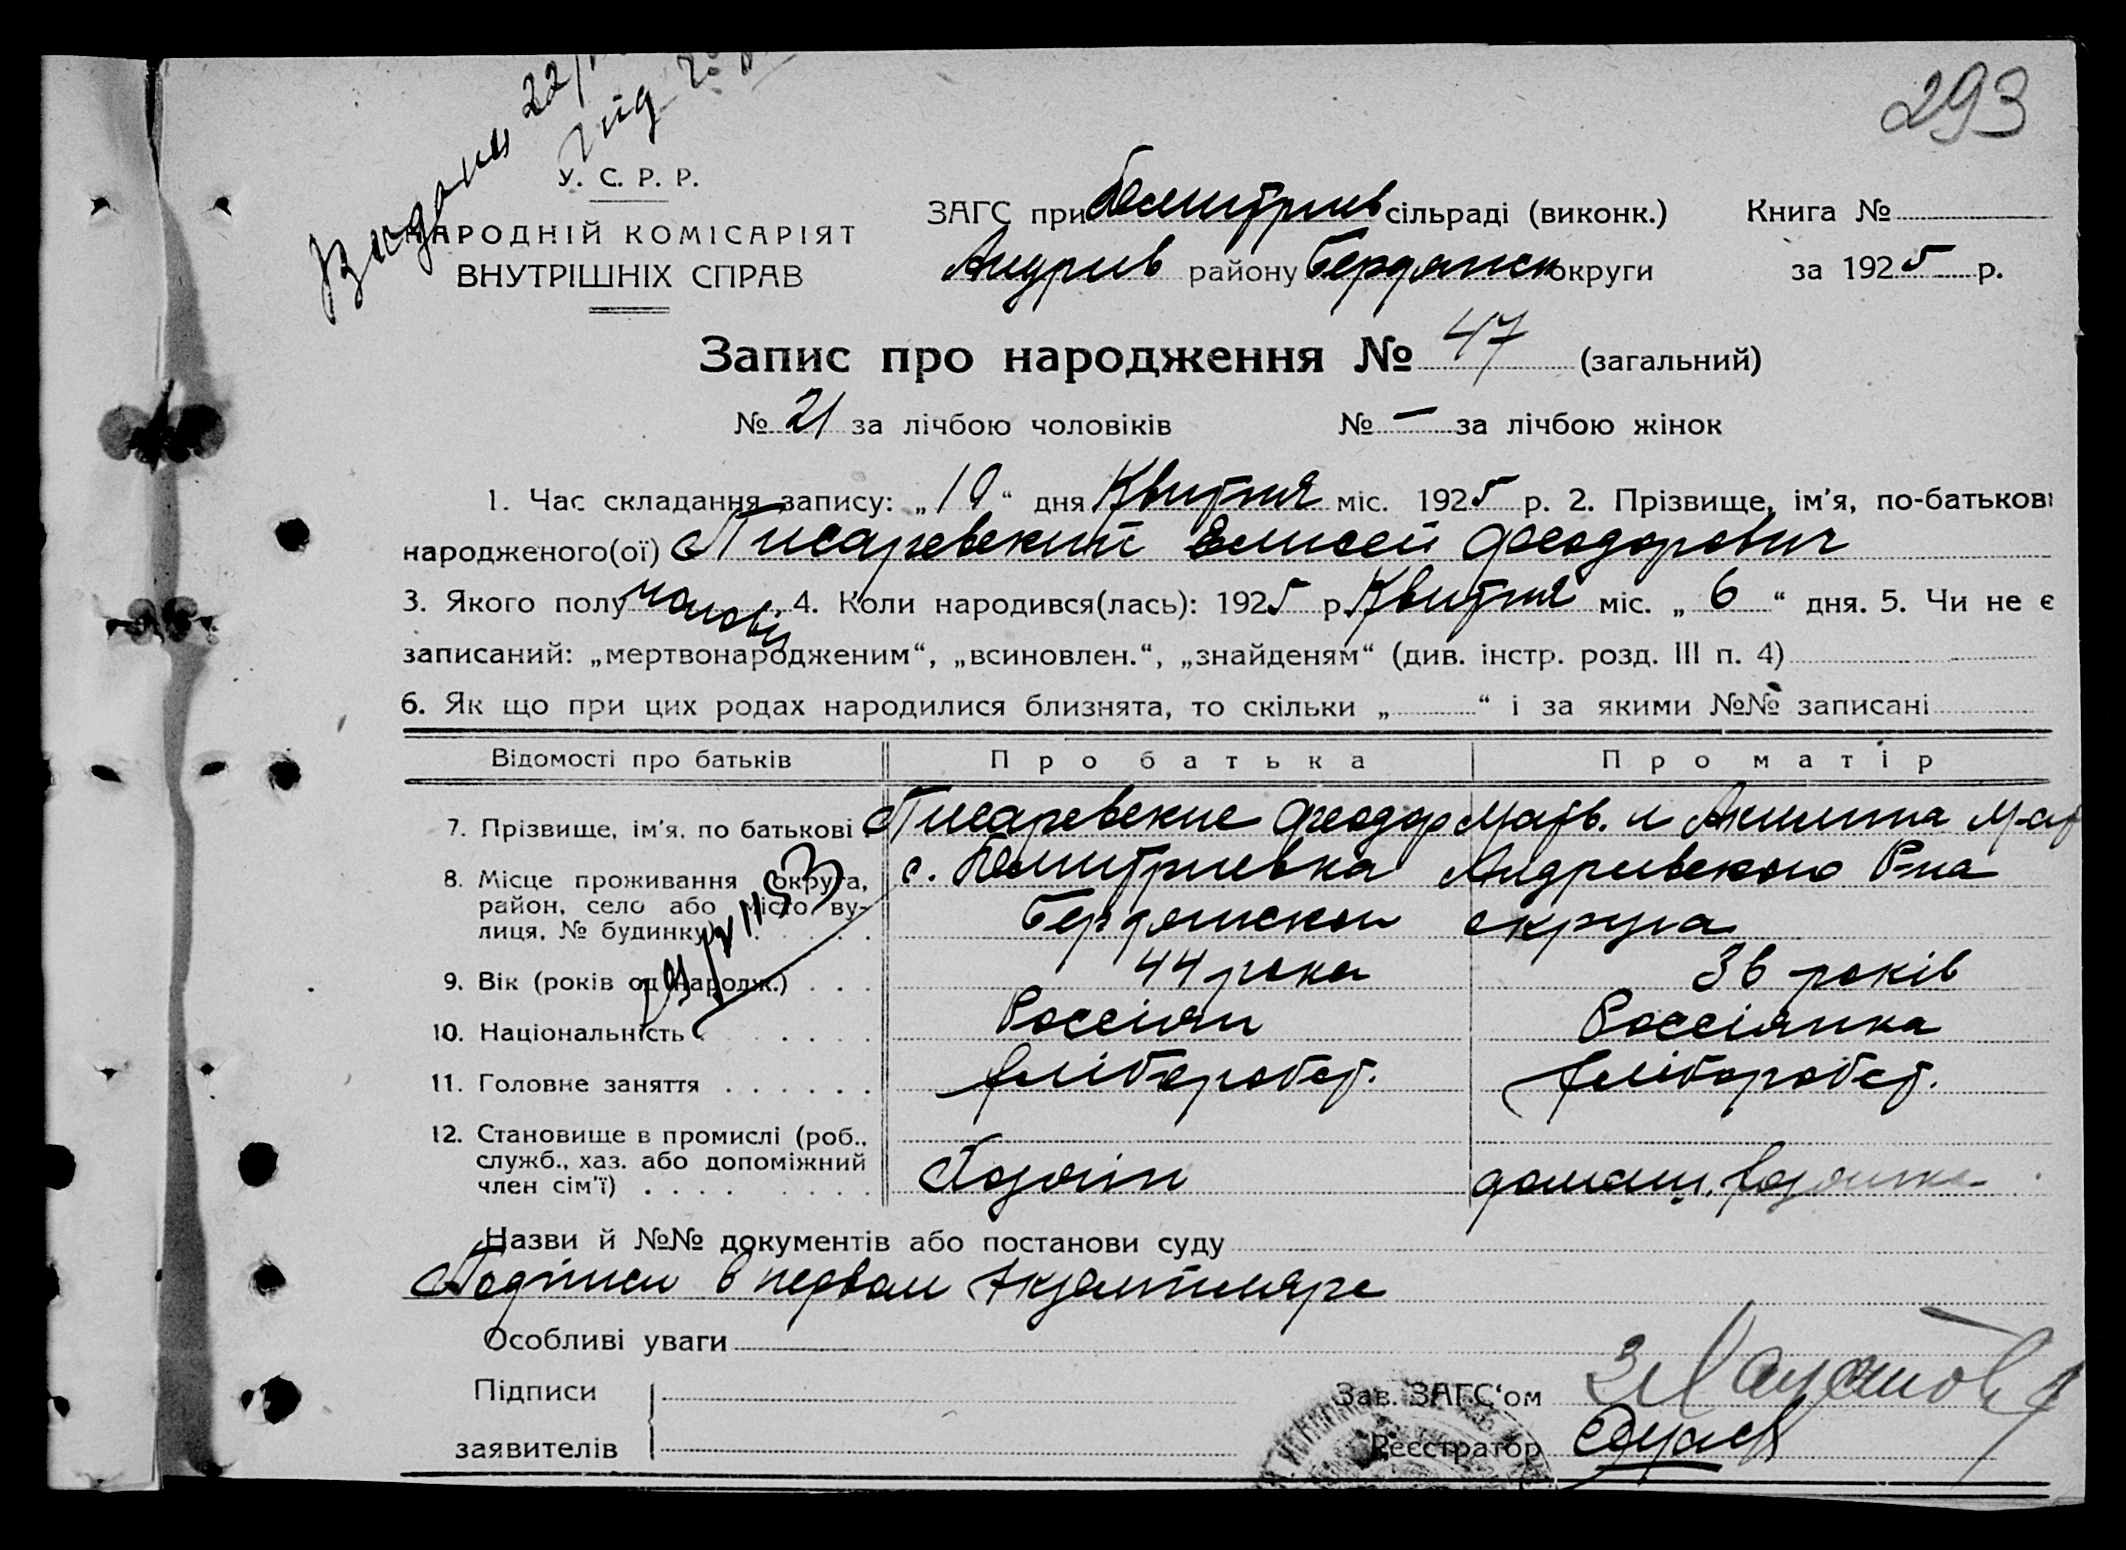 293
Видани 22/
У. С. Р. Р.
НАРОДНІЙ КОМІСАРІЯТ
ВНУТРІШНІХ СПРАВ
ЗАГС при Дмитрив сільраді (виконк.) Книга №
Андрив району Бердянск округи за 1925 р.
Запис про народження № 47 (загальний)
№ 21 за лічбою чоловіків № — за лічбою жінок
1. Час складання запису: „10“ дня Квитня міс. 1925 р. 2. Прізвище, ім'я, по-батькові
народженого(ої) Писаревский Елисей Феодорович
3. Якого полу чолові 4. Коли народився(лась): 1925 р. Квитня міс. „6“ дня. 5. Чи не є
записаний: „мертвонародженим“, „всиновлен.“, „знайденям“ (див. інстр. розд. III п. 4)
6. Як що при цих родах народилися близнята, то скільки „ “ і за якими №№ записані
Відомості про батьків Про батька Про матір
7. Прізвище, ім'я, по батькові Писаревские Феодор Матв. и Акилина Мат
8. Місце проживання округа, с. Дмитриевка Андреевского Р-на
район, село або місто ву-
лиця, № будинку) Бердянскои округа
9. Вік (років од народж.) 44 рока 36 років
10. Національність Россіян Россіянка
11. Головне заняття хлібороб. хлібороб.
12. Становище в промислі (роб.,
служб., хаз. або допоміжний
член сім'ї) Хозяін домаш. хозяика
Назви й №№ документів або постанови суду
Подписи в первом Екземпляре
Особливі уваги
Підписи Зав. ЗАГС'ом
заявителів Реєстратор